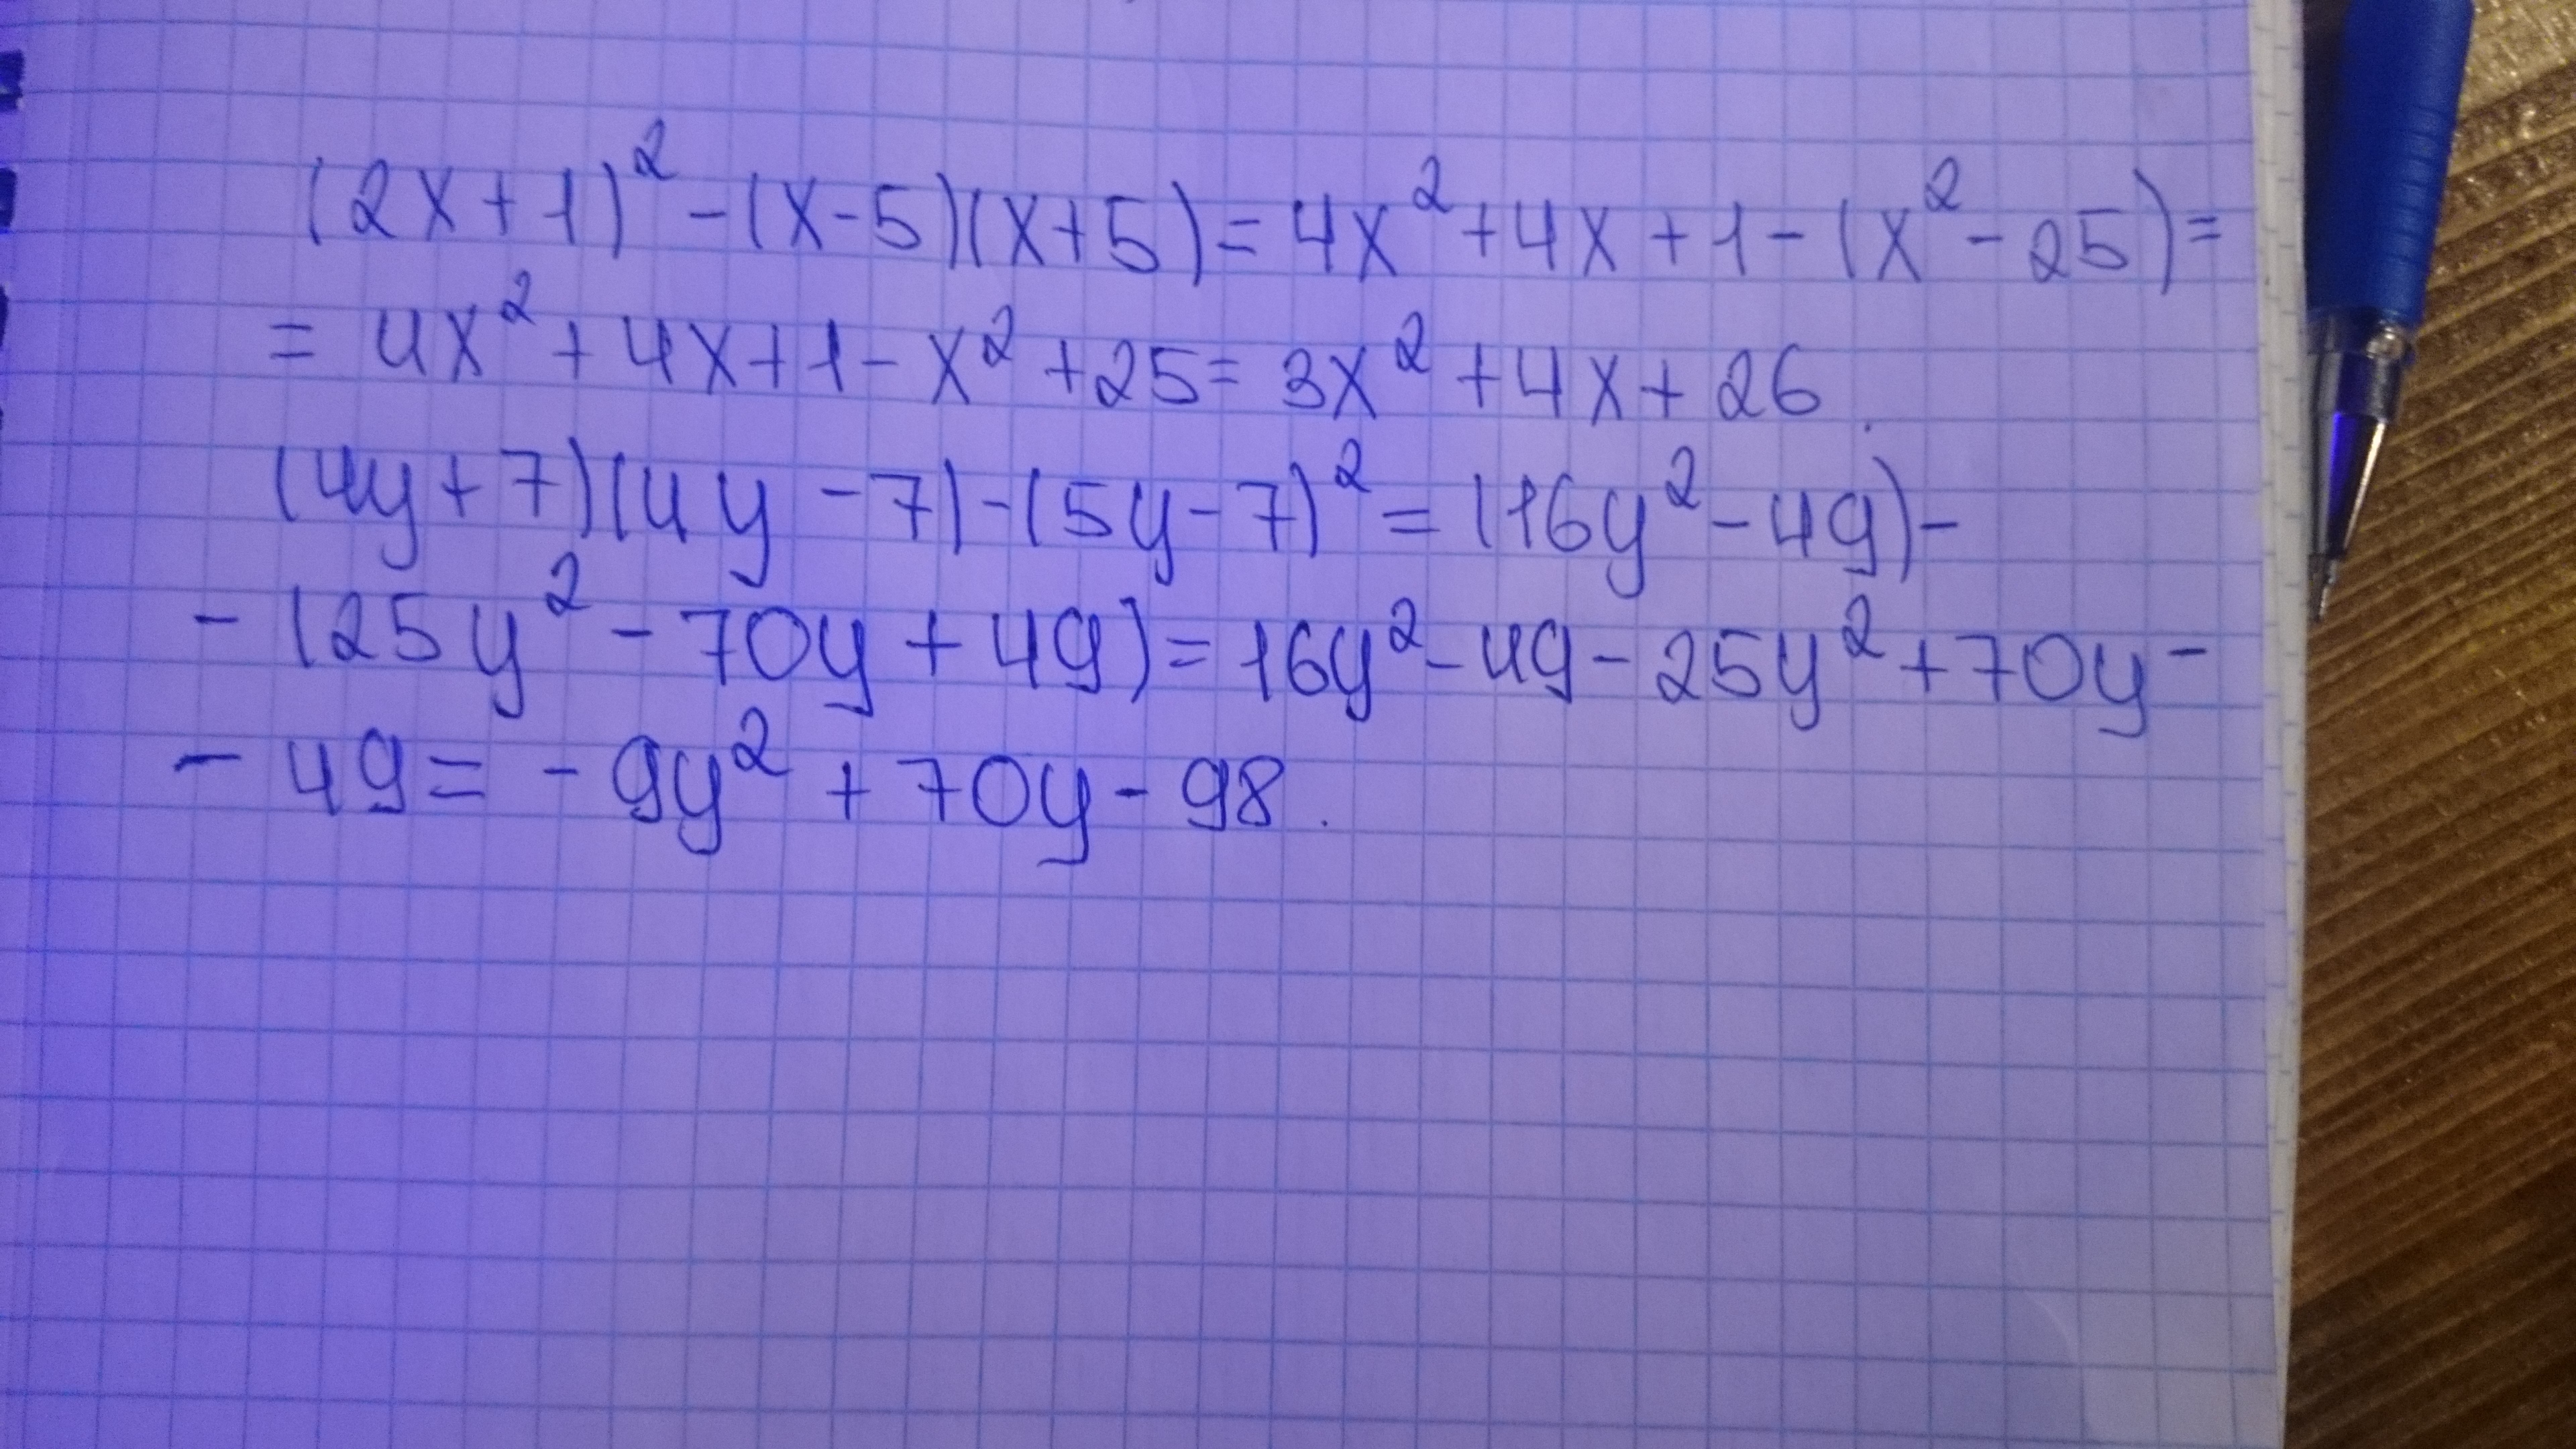 (2x+1)² -(x-5)(x+5)= 4x² +4x+1-(x² - 25)=
= 4x² +4x+1- x² +25= 3x² +4x+26.
(4y+7)(4y -7)-(5y-7)² = (16y² - 49)-
- (25y² - 70y + 49)= 16y² - 49 - 25y² +70y -
- 49= - 9y² + 70y - 98.